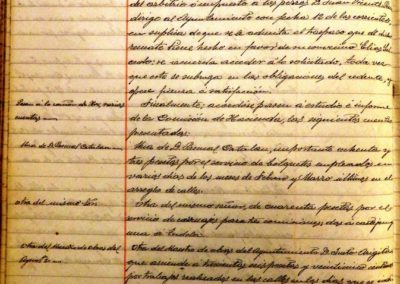 del arbitrio o impuesto a los perros D. Juan
dirige al Ayuntamiento con fecha 12 de los corrientes,
en súplica de que se le admita el traspaso que de di
remate tiene hecho en favor de su convecino Elías
se acuerda acceder a lo solicitado, toda vez
que este se subroga en las obligaciones del cedente, y
ofrece fianza a satisfacción.
Pasen a la comisión de Hac. varias
cuentas
Finalmente, acordóse pasen a estudio é informe
de la Comisión de Hacienda, las siguientes cuentas
presentadas:
Una de D. Pascual Catalan
Una de D. Pascual Catalan, importante ochenta y
tres pesetas por el servicio de volquetes empleados en
varios días de los meses de Febrero y Marzo últimos en el
arreglo de calles.
otra del mismo Sor.
Otra del mismo señor, de cuarenta pesetas por el
servicio de carruajes para
una a Tudela.
Otra del Maestro de obras del
Ayunt.
Otra del Maestro de obras del Ayuntamiento D. Justo
que asciende a trescientas seis pesetas y veinticinco
por trabajos realizados en las calles en los días que se